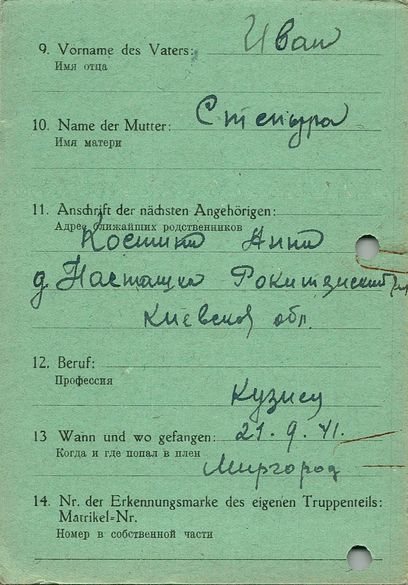 9. Vorname des Vaters: Иван
Имя отца
10. Name der Mutter: Степура
Имя матери
11. Anschrift der nächsten Angehörigen:
Адрес ближайших родственников
Анна
д. Насташка Рокитянский
Киевской обл.
12. Beruf:
Профессия
Кузнец
13 Wann und wo gefangen: 21. 9. 41.
Когда и где попал в плен
Миргород
14. Nr. der Erkennungsmarke des eigenen Truppenteils:
Matrikel=Nr.
Номер в собственной части